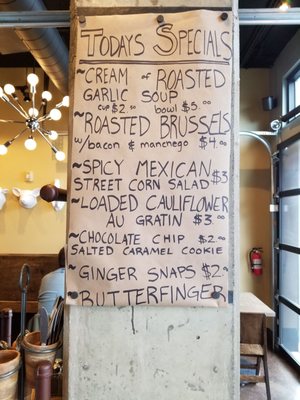 TODAYS SPECIALS
~CREAM of ROASTED
GARLIC SOUP
cup $2.00 bowl $5.00
~ROASTED BRUSSELS
w/bacon & manchego $4.00
~SPICY MEXICAN
STREET CORN SALAD $3
~LOADED CAULIFLOWER
AU GRATIN $3.00
~CHOCOLATE CHIP $2.00
SALTED CARAMEL COOKIE
~GINGER SNAPS $2.00
BUTTERFINGER